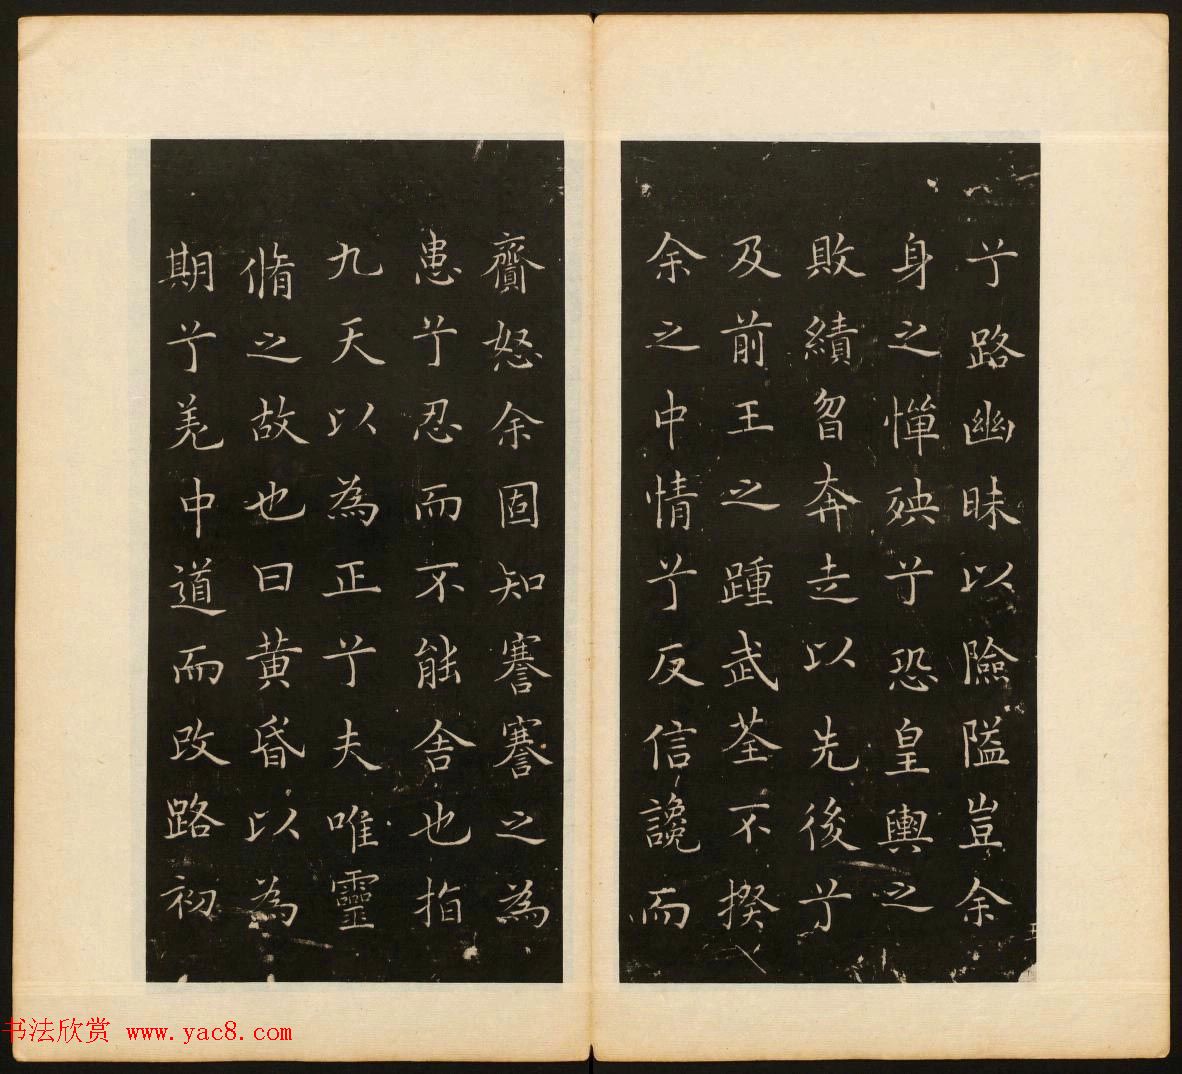 兮路幽昧以險隘豈余
身之憚殃兮恐皇輿之
敗績曶奔走以先後兮
及前王之踵武荃不揆
余之中情兮反信讒而
齌怒余固知謇謇之為
患兮忍而不能舍也指
九天以為正兮夫唯靈
脩之故也曰黃昏以為
期兮羌中道而改路初
书法欣赏 www.yac8.com